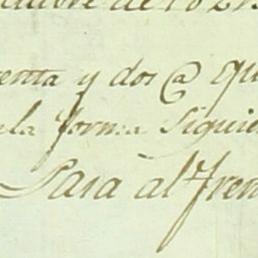 de 182
enta y dos @ qu
la forma Siguie
Pasa al Fren